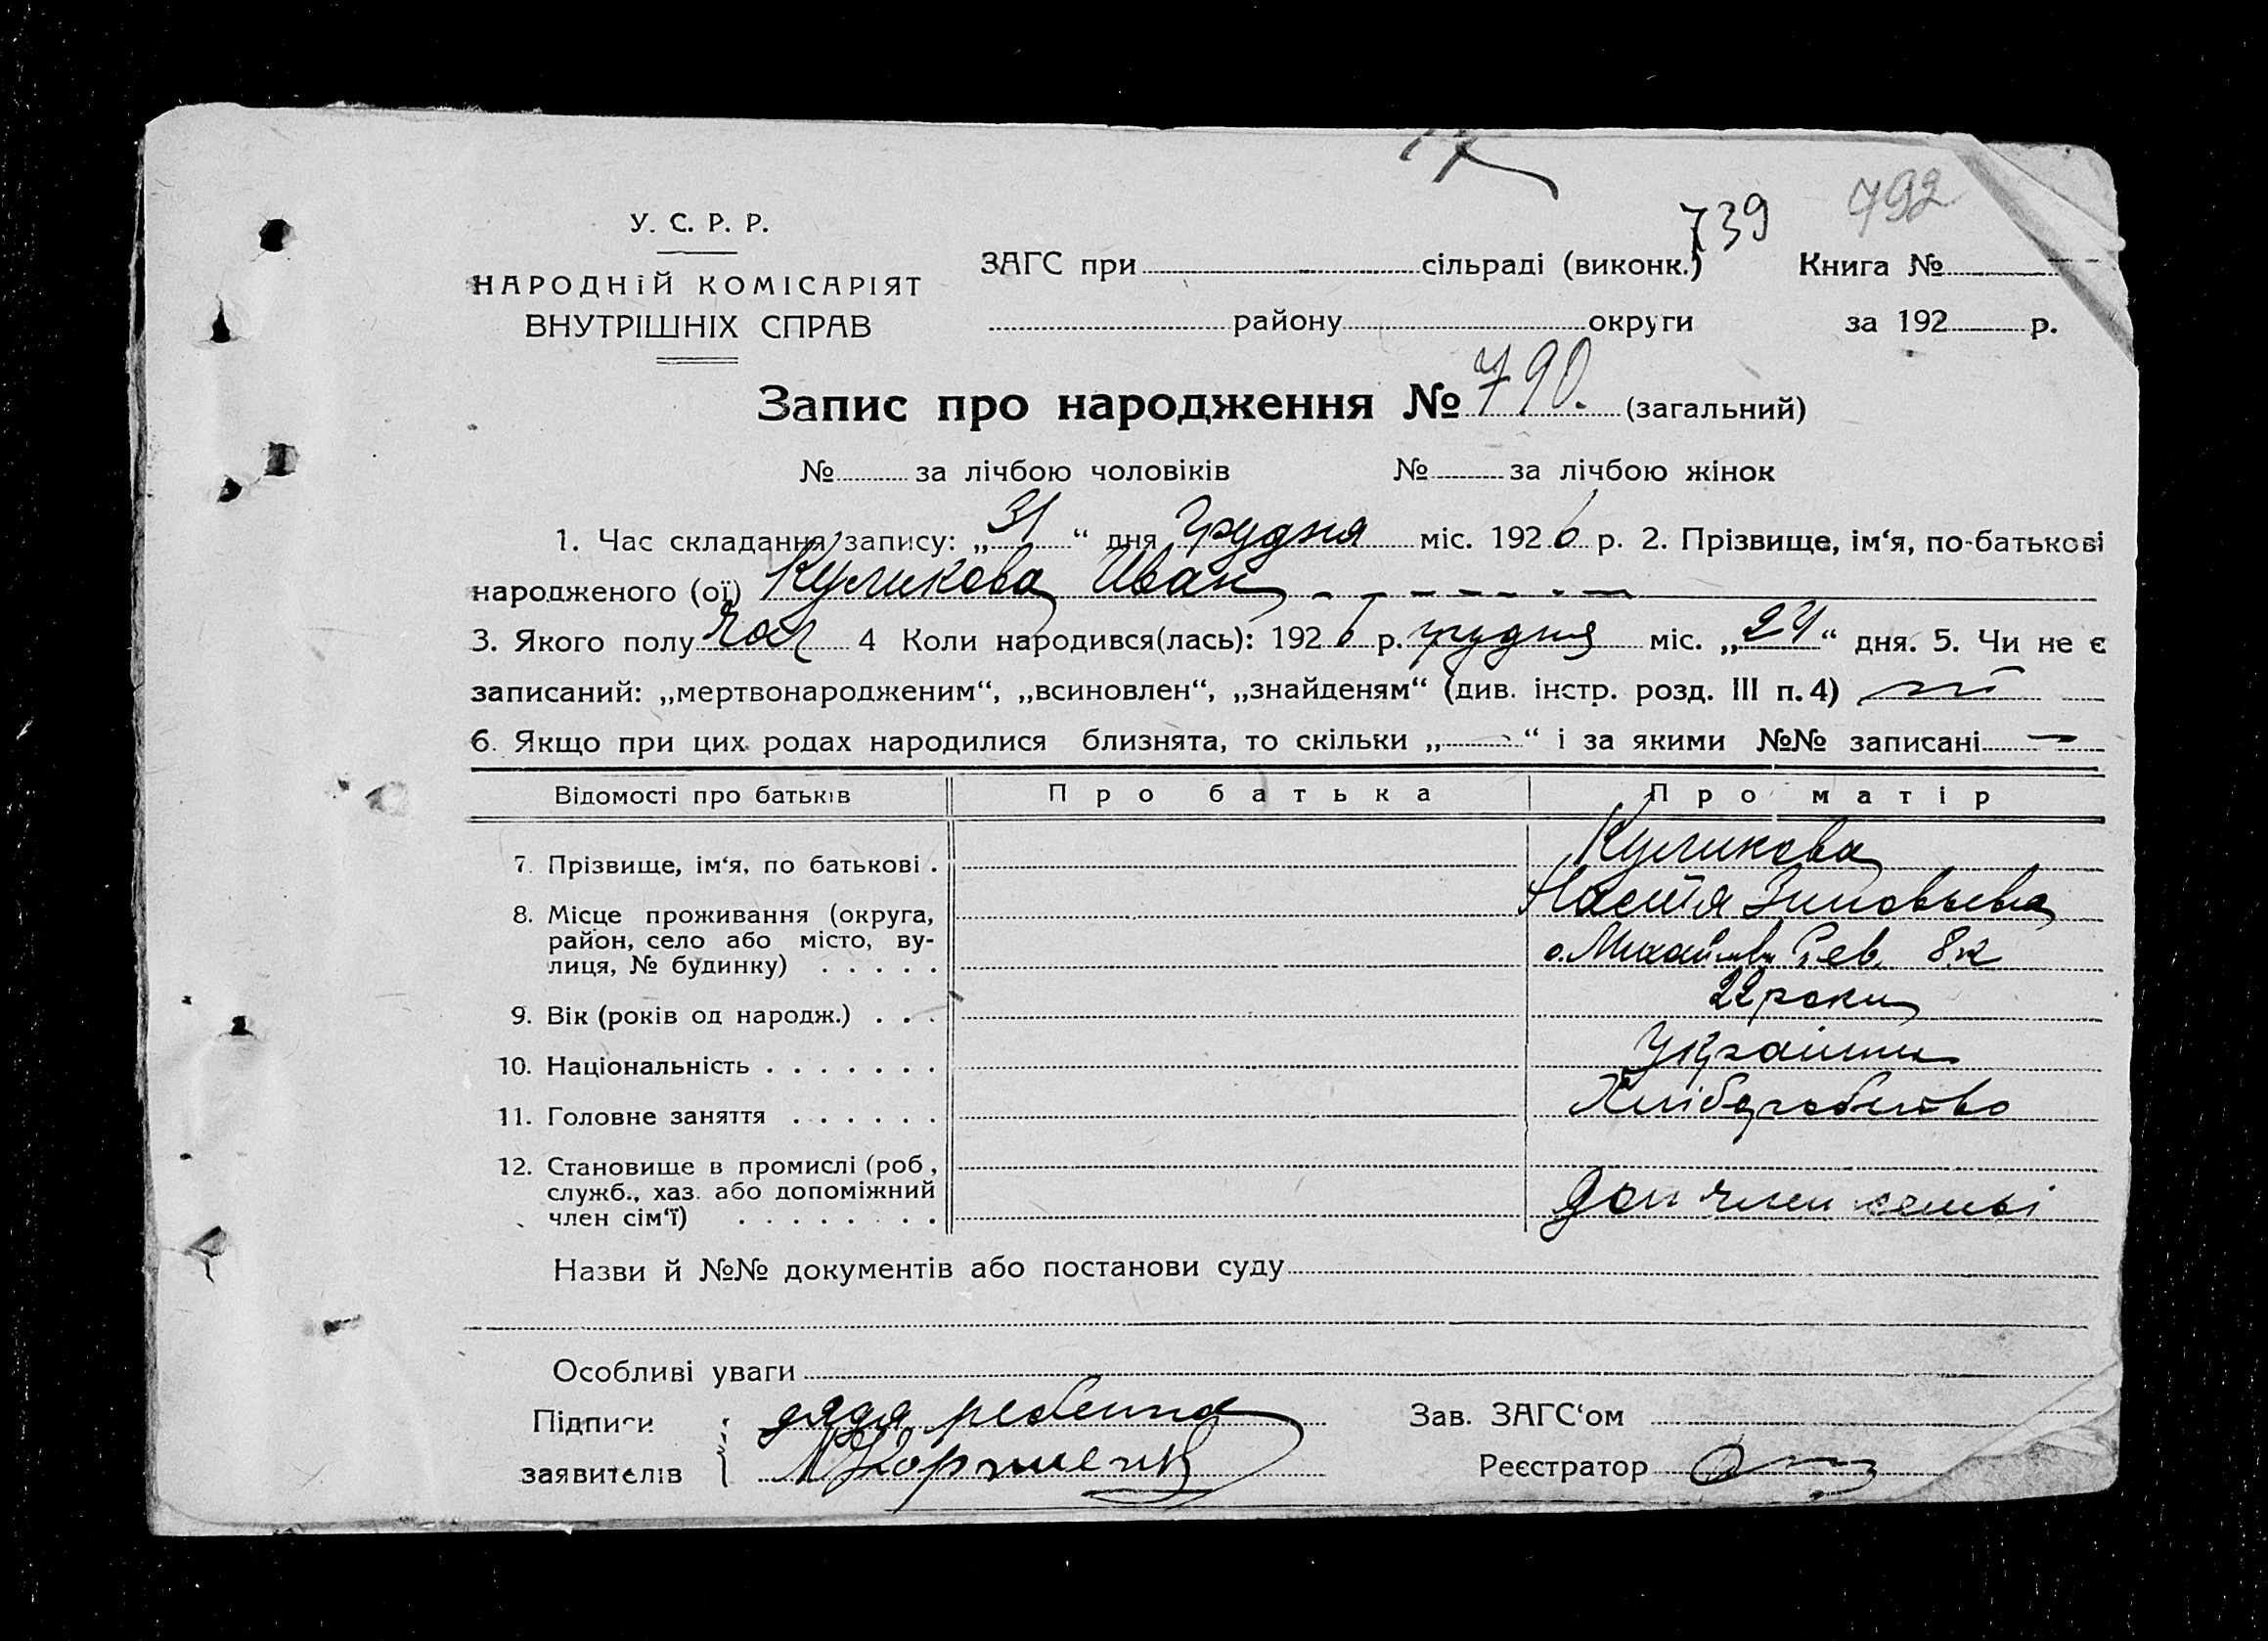 739 792
У. С. Р. Р.
НАРОДНІЙ КОМІСАРІЯТ
ВНУТРІШНІХ СПРАВ
ЗАГС при сільраді (виконк.) Книга №
району округи за 192 р.
Запис про народження № 790. (загальний)
№ за лічбою чоловіків № за лічбою жінок
1. Час складання запису: „31“ дня Грудня міс. 1926 р. 2. Прізвище, ім‘я, по-батькові
народженого (ої) Куликова Иван
3. Якого полу чол 4 Коли народився(лась): 1926 р. грудня міс. „24“ дня. 5. Чи не є
записаний: „мертвонародженим“, „всиновлен“, „знайденям“ (див. інстр. розд. III п. 4) ні
6. Якщо при цих родах народилися близнята, то скільки „—“ і за якими №№ записані —
Відомості про батьків Про батька Про матір
7. Прізвище, ім‘я, по батькові . Куликова
8. Місце проживання (округа, Настя Зиновьева
район, село або місто, ву-
лиця, № будинку) . . . . . Рев. 82
9. Вік (років од народж.) . . . 22 роки
10. Національність . . . . . . . Українка
11. Головне заняття . . . . . . Хліборобство
12. Становище в промислі (роб.,
служб., хаз. або допоміжний
член сім‘ї) . . . . . . . . доп член семьі
Назви й №№ документів або постанови суду
Особливі уваги
Підписи дядя ребенка Зав. ЗАГС‘ом
заявителів Реєстратор